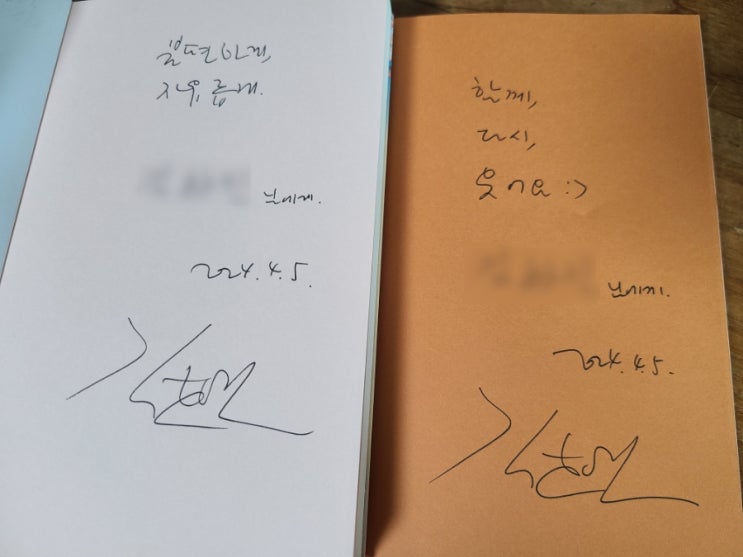 불편하게,
자유롭게.
님에게.
2024.4.5.
함께,
다시,
웃어요 :)
님에게.
2024.4.5.